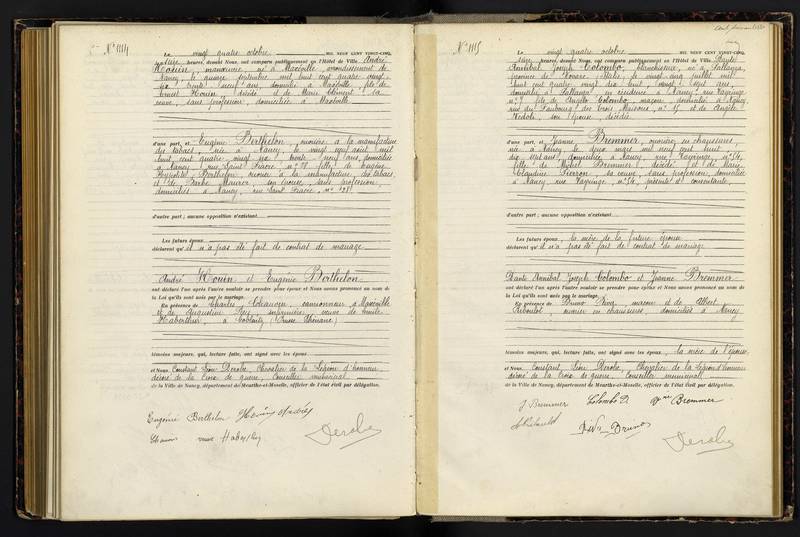 N° 1114
Le vingt quatre octobre MIL NEUF CENT VINGT-CINQ,
heures, devant Nous, ont comparu publiquement en l'Hôtel de Ville André
Houin, manœuvre, né à Maxéville, arrondissement de
Nancy, le quinze septembre mil huit cent quatre vingt
six, trente neuf ans, domicilié à Maxéville, fils de
Ernest Houin, décédé, et de Marie Clément, sa
veuve, sans profession, domiciliée à Maxéville
d'une part, et Eugénie Berthelon, ouvrière à la manufacture
des tabacs, née à Nancy, le vingt neuf août mil
huit cent quatre vingt six, trente neuf ans, domiciliée
à Nancy, rue Saint fille de
Hyppolite Berthelon, ouvrier à la manufacture des tabacs,
et de Barbe son épouse, sans profession,
domiciliés à Nancy, rue Saint
d'autre part ; aucune opposition n'existant
Les futurs époux
déclarent qu'il n'a pas été fait de contrat de mariage
André Houin et Eugénie Berthelon
ont déclaré l'un après l'autre vouloir se prendre pour époux et Nous avons prononcé au nom de
la Loi qu'ils sont unis par le mariage.
En présence de Charles camionneur à Maxéville
et de Augustine infirmière, veuve de Emile
à Coblentz (Prusse Rhénane)
témoins majeurs, qui, lecture faite, ont signé avec les époux
et Nous, Constant Léon Derobe, Chevalier de la Légion d'honneur,
décoré de la Croix de guerre, Conseiller municipal
de la Ville de Nancy, département de Meurthe-et-Moselle, officier de l'état civil par délégation.
Eugénie Berthelon Houin André
veuve
Derobe
N° 1115
Le vingt quatre octobre MIL NEUF CENT VINGT-CINQ,
heures, devant Nous, ont comparu publiquement en l'Hôtel de Ville Dante
Annibal Joseph Colombo, né à Pallanza,
province de Novare, Italie, le vingt cinq juillet mil
huit cent quatre vingt dix huit, vingt sept ans,
domicilié à Pallanza, en résidence à Nancy, rue
n° fils de Angelo Colombo, maçon, domicilié à Nancy,
rue du Faubourg des Trois Maisons, n° et de Angèle
son épouse, décédée
d'une part, et Jeanne Bremmer, ouvrière en chaussures,
née à Nancy, le douze mars mil neuf cent huit,
dix sept ans, domiciliée à Nancy, rue n° 54,
fille de Michel Bremmer, décédé, et de Marie
Claudine Pierron, sa veuve, sans profession, domiciliée
à Nancy, rue n° 54, présente et consentante,
d'autre part ; aucune opposition n'existant
Les futurs époux, la mère de la future épouse
déclarent qu'il n'a pas été fait de contrat de mariage
Dante Annibal Joseph Colombo et Jeanne Bremmer
ont déclaré l'un après l'autre vouloir se prendre pour époux et Nous avons prononcé au nom de
la Loi qu'ils sont unis par le mariage.
En présence de Bruno maçon et de Albert
ouvrier en chaussures, domiciliés à Nancy
témoins majeurs, qui, lecture faite, ont signé avec les époux, la mère de l'épouse
et Nous, Constant Léon Derobe, Chevalier de la Légion d'honneur
décoré de la Croix de guerre, Conseiller municipal
de la Ville de Nancy, département de Meurthe-et-Moselle, officier de l'état civil par délégation.
J Bremmer Colombo D. Vve Bremmer
Bruno
Derobe